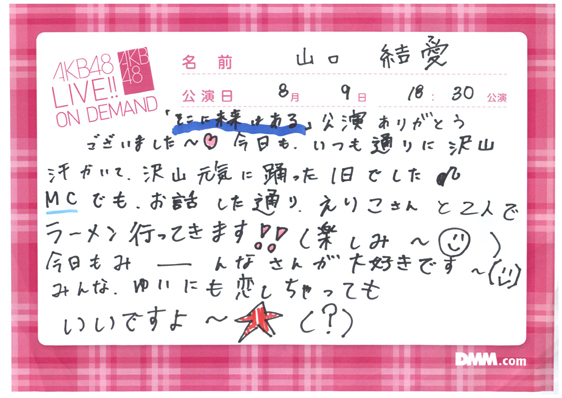 AKB48
LIVE!!
ON DEMAND
AKB
48
名前 山口 結愛
公演日 8月 9日 18:30 公演
「そこに未来はある」公演ありがとう
ございました〜♡ 今日も、いつも通りに沢山
汗かいて、沢山元気に踊った1日でした♪
MCでも、お話した通り、えりこさんと2人で
ラーメン行ってきます!!(楽しみ〜☺)
今日もみ――んなさんが大好きです〜(☺)
みんな、ゆいにも恋しちゃっても
いいですよ〜★(?)
DMM.com